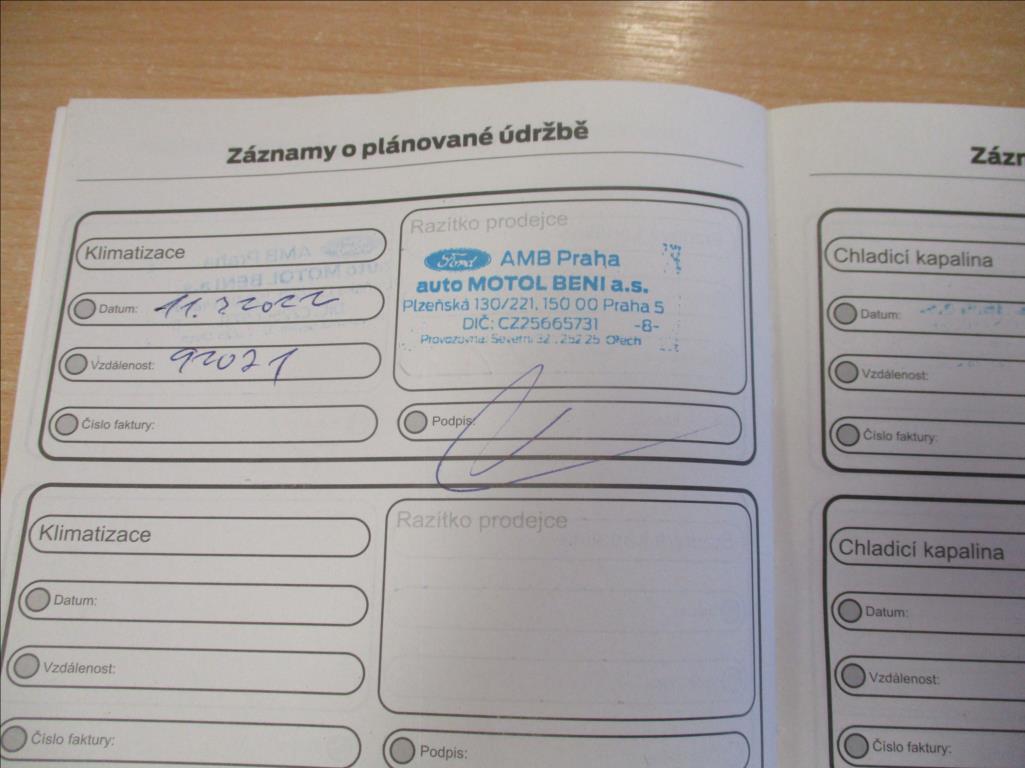 Záznamy o plánované údržbě
Klimatizace
Datum: 11.3.2022
Vzdálenost: 92021
Číslo faktury:
Razítko prodejce
Ford AMB Praha
auto MOTOL BENI a.s.
Plzeňská 130/221, 150 00 Praha 5
DIČ: CZ25665731 -8-
Provozovna: Severní 32, 252 25 Ořech
Podpis:
Klimatizace
Datum:
Vzdálenost:
Číslo faktury:
Razítko prodejce
Podpis:
Chladicí kapalina
Datum:
Vzdálenost:
Číslo faktury:
Chladicí kapalina
Datum:
Vzdálenost:
Číslo faktury: